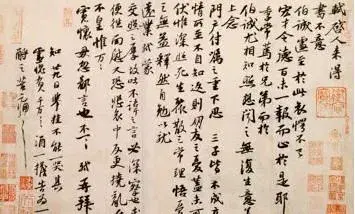 軾啓人來得
書不意
伯誠遽至于此哀愕不已
宏才令德百未一報而止於是耶
季常篤於兄弟而於
伯誠尤相知照想聞之無復生意
上念
門戶付囑之重下思三子皆不成立
情所至不自知返則朋友之憂蓋未可
伏惟深照死生聚散之常理悟憂
之無益釋然自勉以就
遠業軾蒙
交照之厚故吐不諱之言必深察也
便往面慰又恐悲哀中反更撓亂
不皇惟萬萬
寬懷毋忽鄙言也不一一軾再拜
知廿九日舉掛不能一哭其
靈愧負千萬千萬酒一擔告為一
酹之苦痛